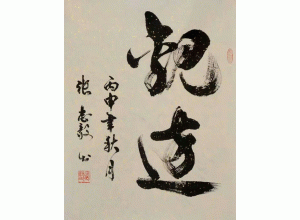 觀遠
丙申年秋月
張志毅书